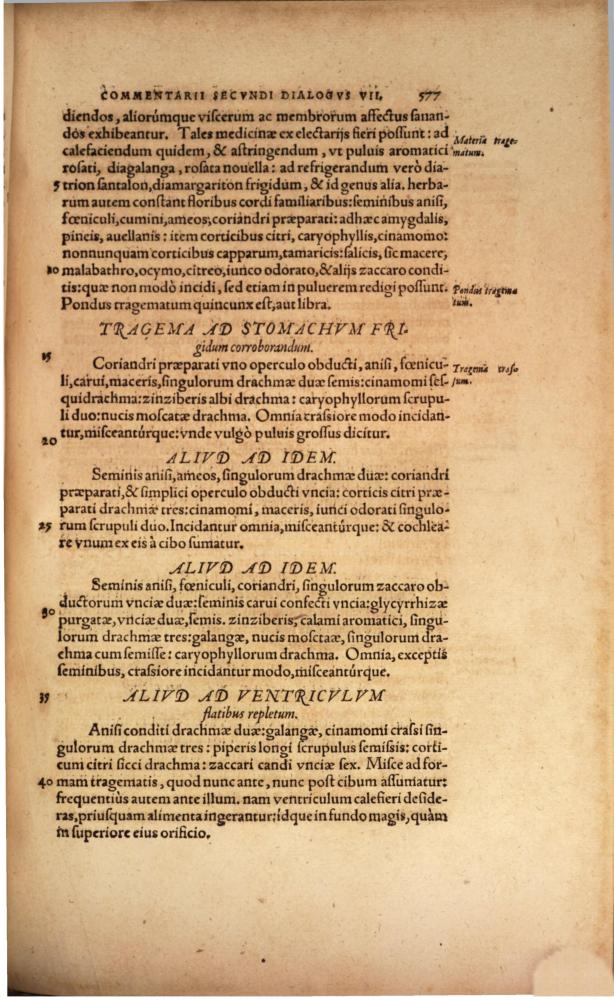 COMMENTARII SECVNDI DIALOGVS VII. 577
diendos, aliorúmque viscerum ac membrorum affectus sanan-
dos exhibeantur. Tales medicinæ ex electarijs fieri possunt: ad
Materia trage-
calefaciendum quidem, & astringendum, vt puluis aromatici
matum.
rosati, diagalanga, rosata nouella: ad refrigerandum verò dia-
5 trion santalon, diamargariton frigidum, & id genus alia. herba-
rum autem constant floribus cordi familiaribus: seminibus anisi,
fœniculi, cumini, ameos, coriandri præparati: ad hæc amygdalis,
pineis, auellanis: item corticibus citri, caryophyllis, cinamomo:
nonnunquam corticibus capparum, tamaricis: salicis, sic macere,
10 malabathro, ocymo, citreo, iunco odorato, & alijs zaccaro condi-
tis: quæ non modò incidi, sed etiam in puluerem redigi possunt.
Pondus tragema
tum.
Pondus tragematum quincunx est, aut libra.
TRAGEMA AD STOMACHVM FRI-
gidum corroborandum.
15
Coriandri præparati vno operculo obducti, anisi, fœnicu-
Tragema crass-
li, carui, maceris, singulorum drachmæ duæ semis: cinamomi ses-
sum.
quidrachma: zinziberis albi drachma: caryophyllorum scrupu-
li duo: nucis moscatæ drachma. Omnia crassiore modo incidan-
20 tur, misceantúrque: vnde vulgò puluis grossus dicitur.
ALIVD AD IDEM.
Seminis anisi, ameos, singulorum drachmæ duæ: coriandri
præparati, & simplici operculo obducti vncia: corticis citri præ-
parati drachmæ tres: cinamomi, maceris, iunci odorati singulo-
25 rum scrupuli duo. Incidantur omnia, misceantúrque: & cochlea-
re vnum ex eis à cibo sumatur.
ALIVD AD IDEM.
Seminis anisi, fœniculi, coriandri, singulorum zaccaro ob-
ductorum vnciæ duæ: seminis carui confecti vncia: glycyrrhizæ
30 purgatæ, vnciæ duæ, semis. zinziberis, calami aromatici, singu-
lorum drachmæ tres: galangæ, nucis mosctaæ, singulorum dra-
chma cum semisse: caryophyllorum drachma. Omnia, exceptis
seminibus, crassiore incidantur modo, misceantúrque.
35 ALIVD AD VENTRICVLVM
flatibus repletum.
Anisi conditi drachmæ duæ: galangæ, cinamomi crassi sin-
gulorum drachmæ tres: piperis longi scrupulus semissis: corti-
cum citri sicci drachma: zaccari candi vnciæ sex. Misce ad for-
40 mam tragematis, quod nunc ante, nunc post cibum assumatur:
frequentiùs autem ante illum. nam ventriculum calefieri deside-
ras, priusquam alimenta ingerantur: idque in fundo magis, quàm
in superiore eius orificio.